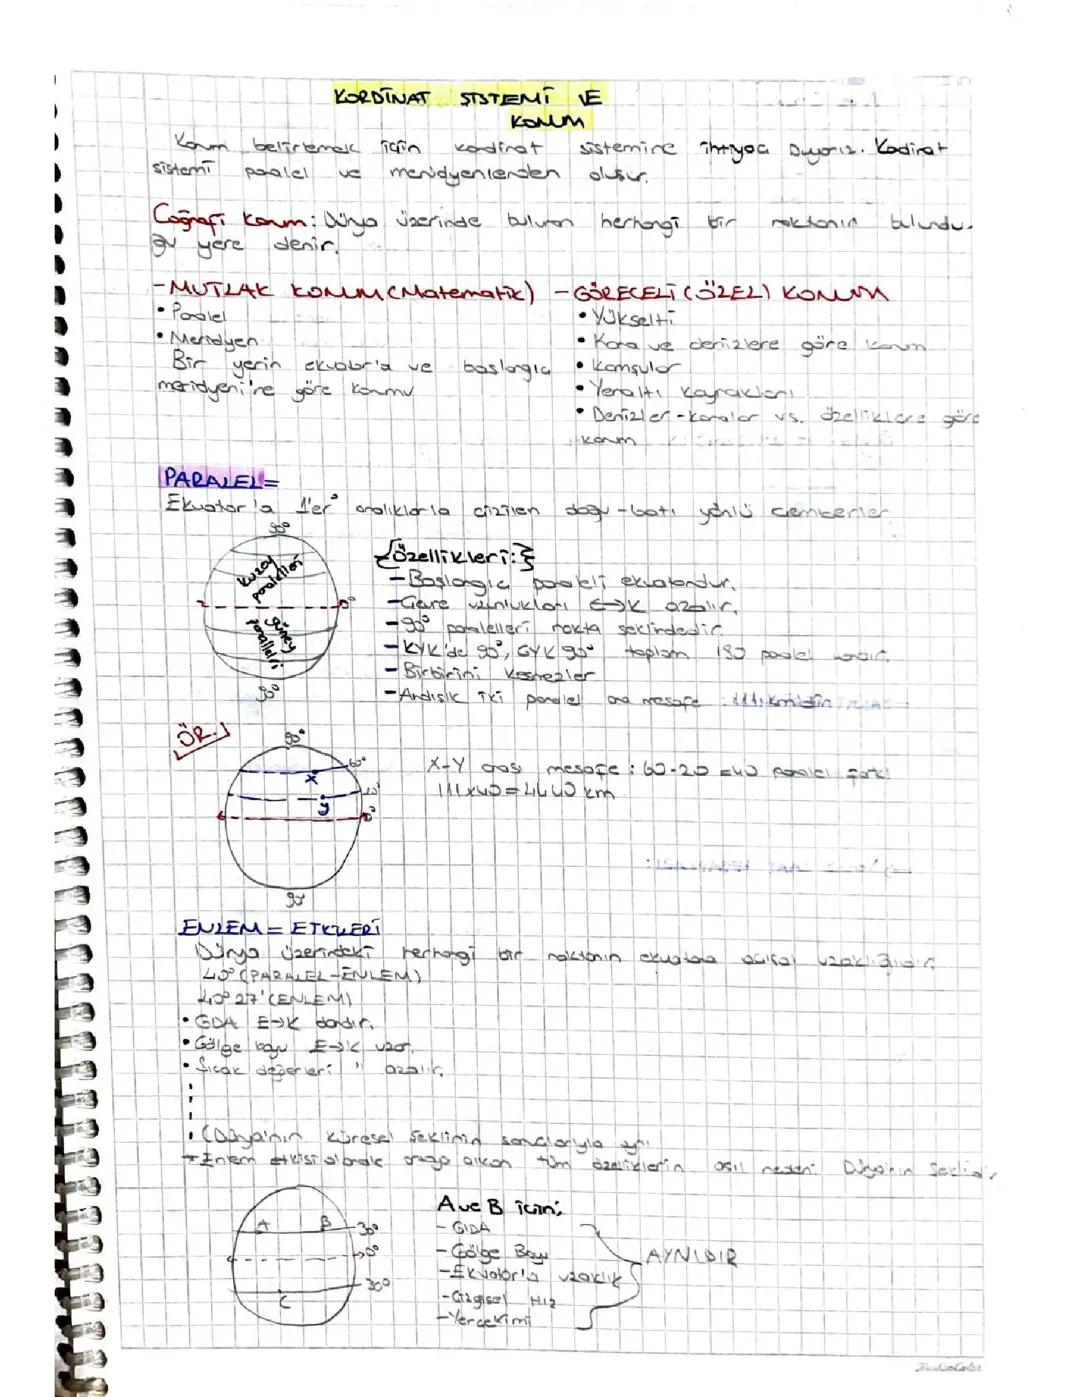 KORDİNAT SİSTEMİ VE
KONUM
Konum belirlemek için kordinat sistemine ihtiyaç duyarız. Kodinat
sistemi paralel ve meridyenlerden oluşur.
Coğrafi Konum: Dünya üzerinde bulunan herhangi bir noktanın bulundu-
ğu yere denir.
-MUTLAK KONUM (Matematik)
• Paralel
• Meridyen
Bir yerin ekvator'a ve başlangıç
meridyeni'ne göre konumu
-GÖRECELİ (ÖZEL) KONUM
• Yükselti
• Kara ve denizlere göre konum
• Komşular
• Yeraltı kaynakları
• Denizler-karalar vs. özelliklere göre
konum
PARALEL=
Ekvator'a 1'er° aralıklarla çizilen doğu-batı yönlü çemberler
90°
Kuzey
paralelleri
0°
güney
paralelleri
90°
{Özellikleri:}
-Başlangıç paraleli ekvatordur.
-Çevre uzunlukları E→K azalır.
-90° paralelleri nokta şeklindedir.
-KYK'de 90°, GYK 90° toplam 180 paralel vardır.
-Birbirini kesmezler
-Ardışık iki paralel ara mesafe 111 km'dir
ÖR.
90°
60°
X
20°
y
0°
90
X-Y arası mesafe: 60-20=40 paralel farkı
111x40=4440 km
ENLEM= ETKİLERİ
Dünya üzerindeki herhangi bir noktanın ekvatora açısal uzaklığıdır
40° (PARALEL-ENLEM)
40° 27' (ENLEM)
• GDA E→K daralır.
• Gölge boyu E→K uzar.
• Sıcak değerleri " azalır.
• (Dünya'nın küresel şeklinin sonuçlarıyla aynı
*Enlem etkisi olarak ortaya çıkan tüm özelliklerin asıl nedeni Dünya'nın şeklidir
A B 30°
0°
30°
C
A ve B için;
- GDA
- Gölge Boyu
-Ekvator'a uzaklık
-Çizgisel Hız
-Yerçekimi
AYNIDIR